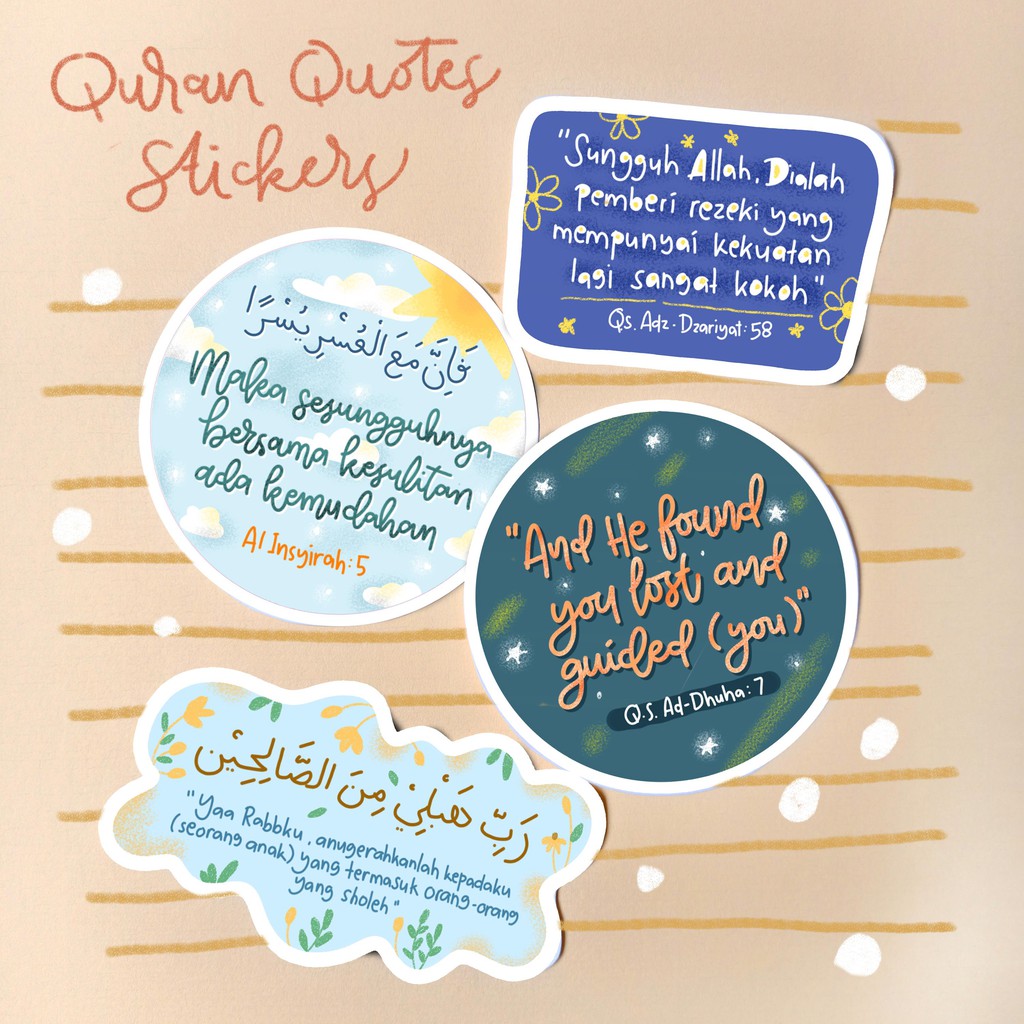 Quran Quotes
Stickers
"Sungguh Allah, Dialah
pemberi rezeki yang
mempunyai kekuatan
lagi sangat kokoh"
Qs. Adz-Dzariyat: 58
فَاِنَّ مَعَ الْعُسْرِ يُسْرًا
Maka sesungguhnya
bersama kesulitan
ada kemudahan
Al Insyirah: 5
"And He found
you lost and
guided (you)"
Q.S. Ad-Dhuha: 7
رَبِّ هَبْلِيْ مِنَ الصَّالِحِيْن
"Yaa Rabbku, anugerahkanlah kepadaku
(seorang anak) yang termasuk orang-orang
yang sholeh"